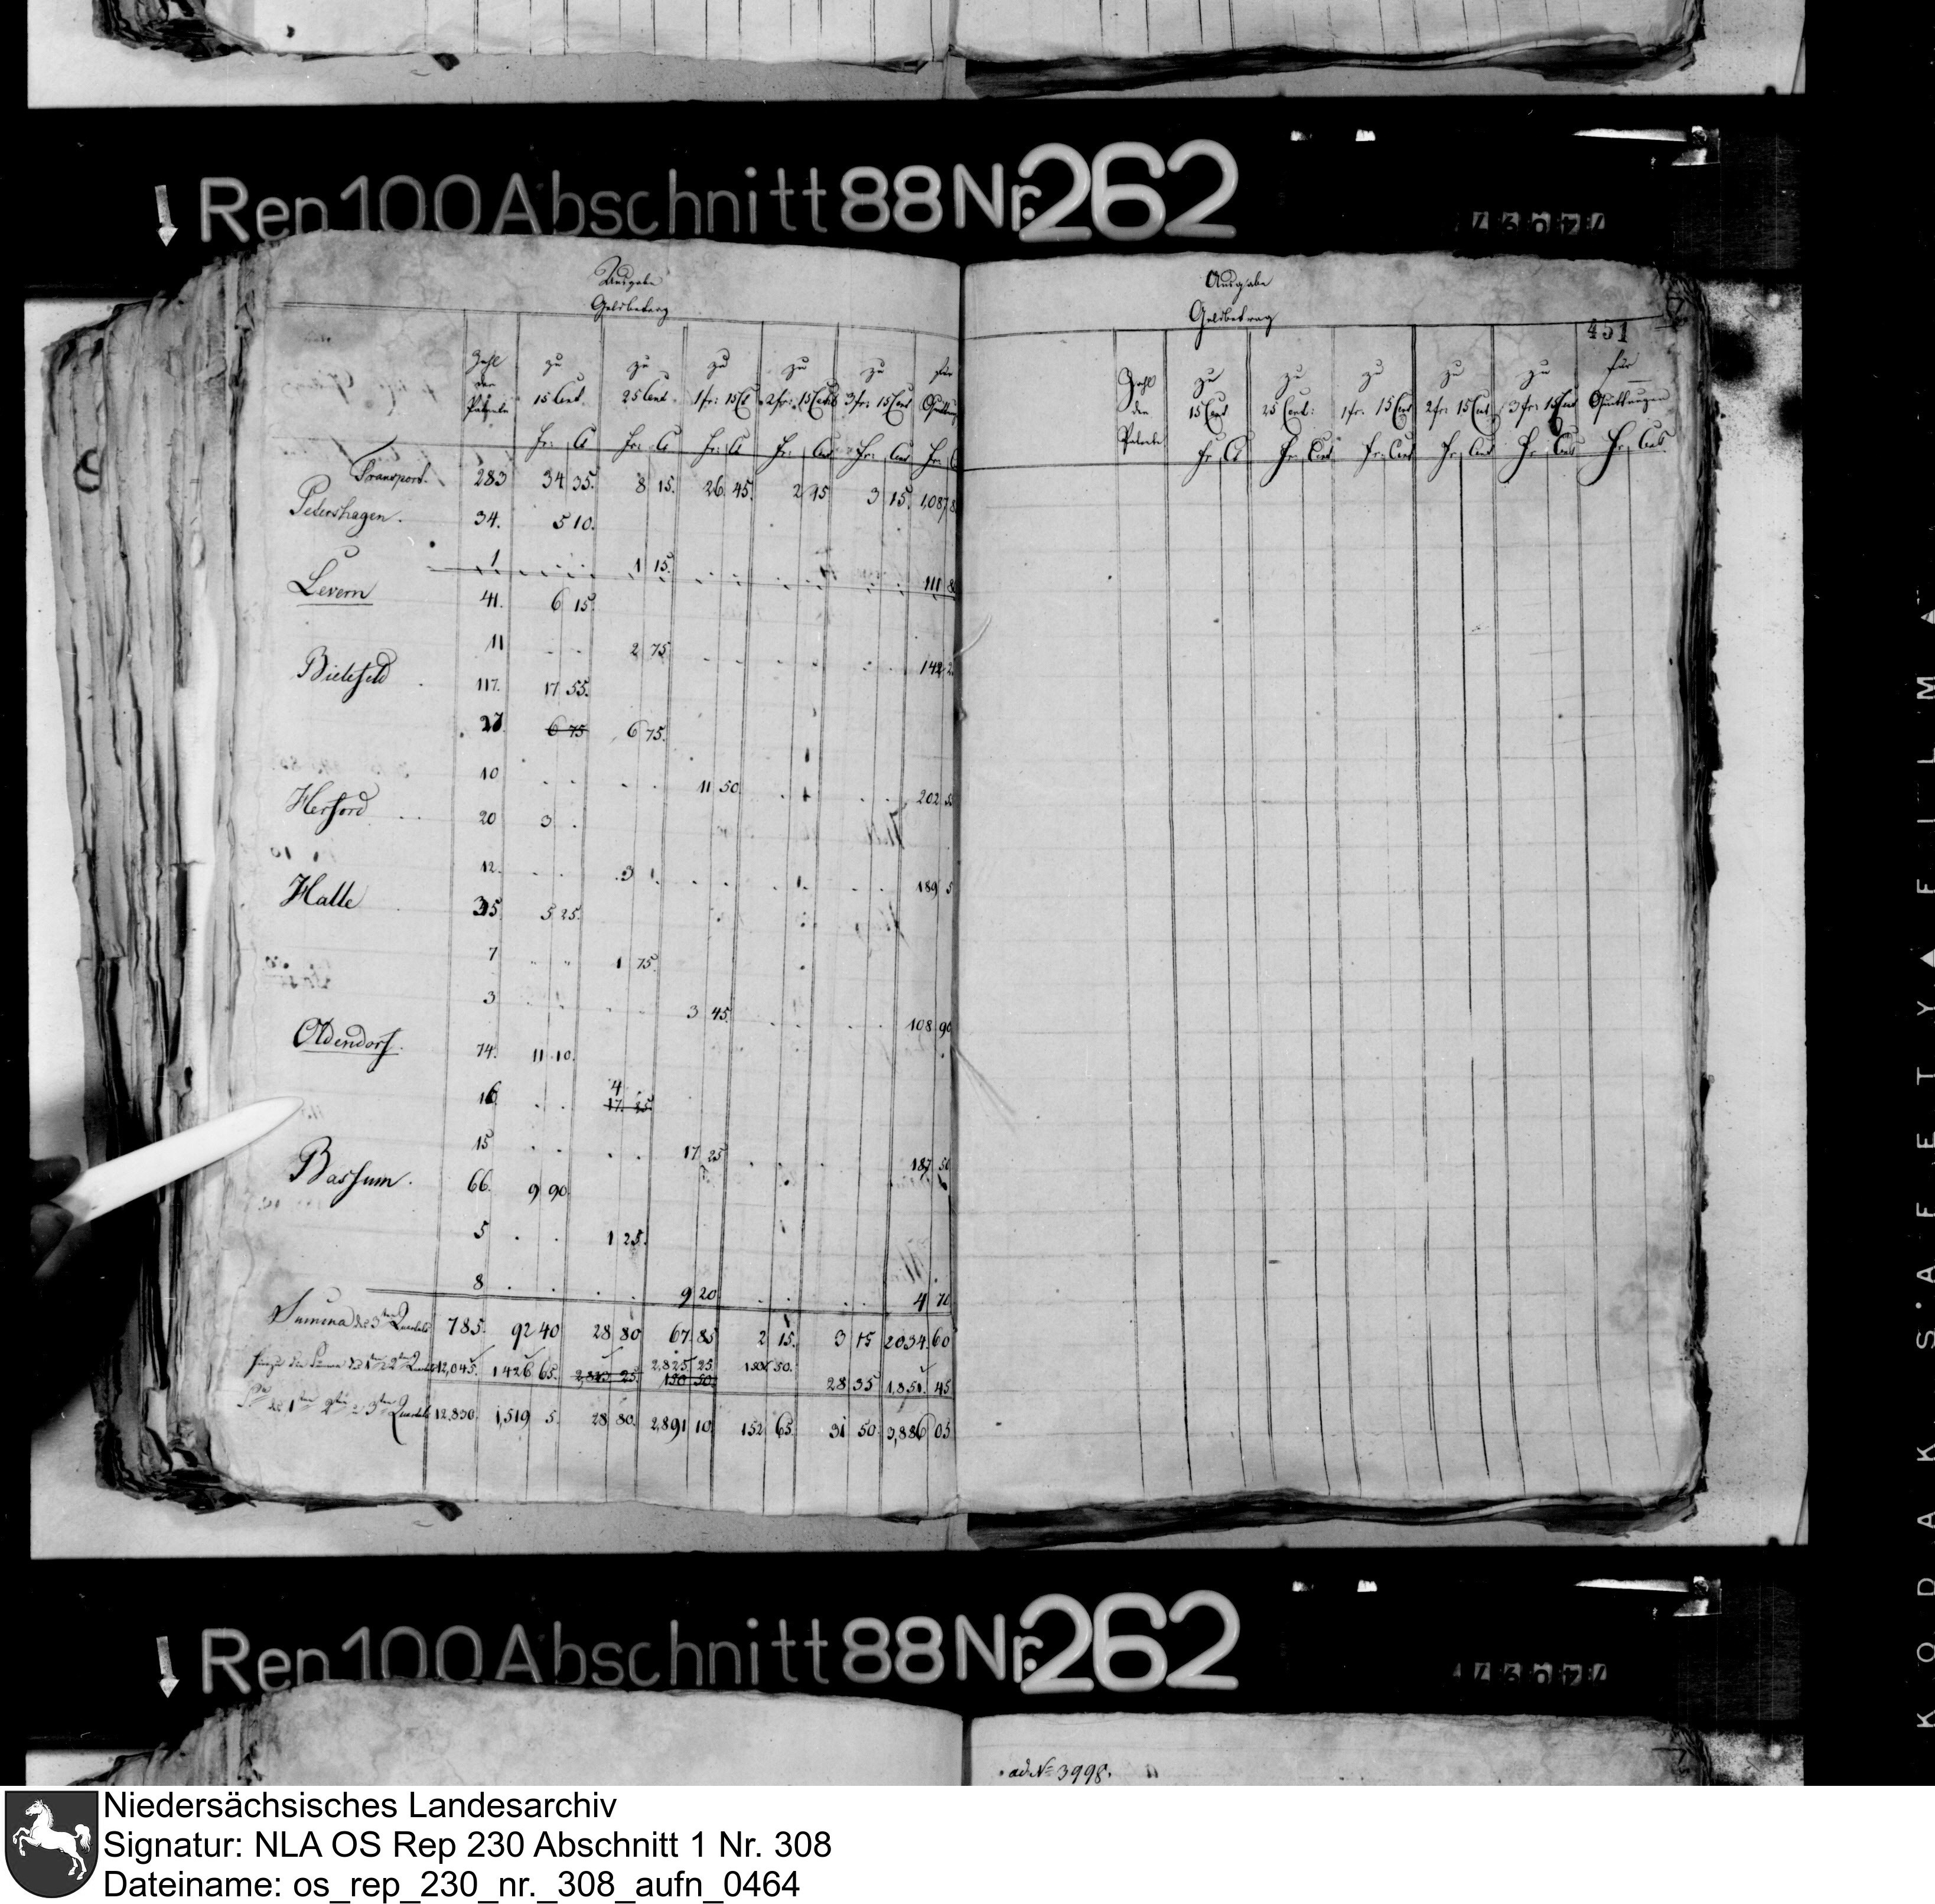 Rep 100 Abschnitt 88 Nr. 262
Ausgabe
Geldbetrag
Zahl der Patente zu 15 Cent. zu 25 Cent. zu 1 fr: 15 Ct zu 2 fr: 15 Cent zu 3 fr: 15 Cent für
Fr: Ct Fr: Ct Fr: Ct Fr: Cent Fr: Cent Fr:
Transport. 283 34 35. 8 15. 26 45. 2 15 3 15. 1,087
Petershagen. 34. 5 10.
1 1 15. 111
Levern 41. 6 15.
11 2 75. 142
Bielefeld 117. 17 55.
27 6 75 6 75.
10 11 50. 202
Herford 20 3
12. 3 189
Halle 35 5 25.
7 1 75.
3 3 45. 108 90
Oldendorf. 74. 11 10.
16 4
17 25
15 17 25 187 50
Bassum. 66. 9 90
5 1 25.
8 9 20 4 70
Summa des 3ten Quartals 785. 92 40 28 80 67 85 2 15. 3 15 2034. 60
12,045. 1426 65. 2,825 25. 2,825 25 150 50 150 50. 28 35 1,851. 45
1ten 2ten 3ten Quartals 12.830. 1,519 5. 28 80. 2,891 10. 152 65. 31 50 3,886 05
451
Ausgabe
Geldbetrag
Zahl der Patente zu 15 Cent zu 25 Cent: zu 1 fr. 15 Cent zu 2 fr: 15 Cent zu 3 fr: 15 Cent für Quittungen
Fr Ct Fr: Cent Fr: Cent Fr: Cent Fr: Cent Fr: Cents
Rep 100 Abschnitt 88 Nr. 262
ad No 3998.
KODAK·SAFETY▲FILM▲
Niedersächsisches Landesarchiv
Signatur: NLA OS Rep 230 Abschnitt 1 Nr. 308
Dateiname: os_rep_230_nr._308_aufn_0464